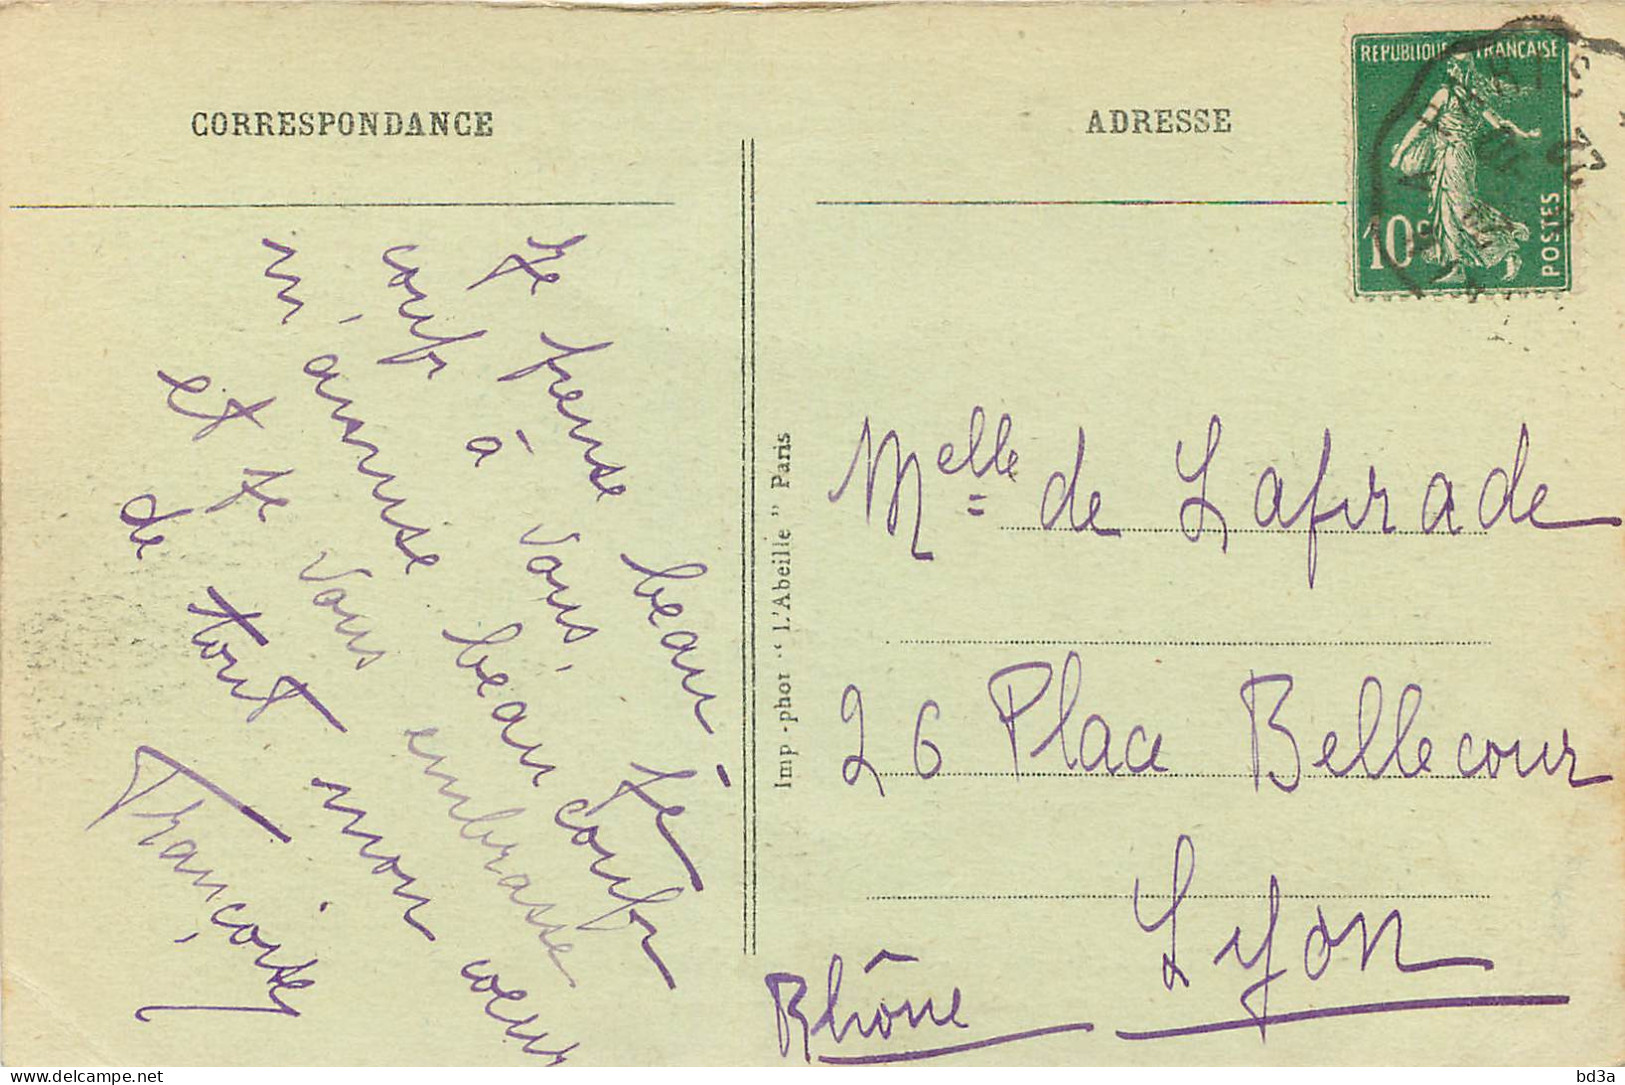 CORRESPONDANCE
ADRESSE
REPUBLIQUE FRANÇAISE
10c
POSTES
Je pense beau
coup à vous, je
m'amuse beaucoup
et je vous embrasse
de tout mon coeur
Françoise
Imp-phot "L'Abeille" Paris
Melle de Lafirade
26 Place Bellecour
Lyon
Rhône
delcampe.net
bd3a